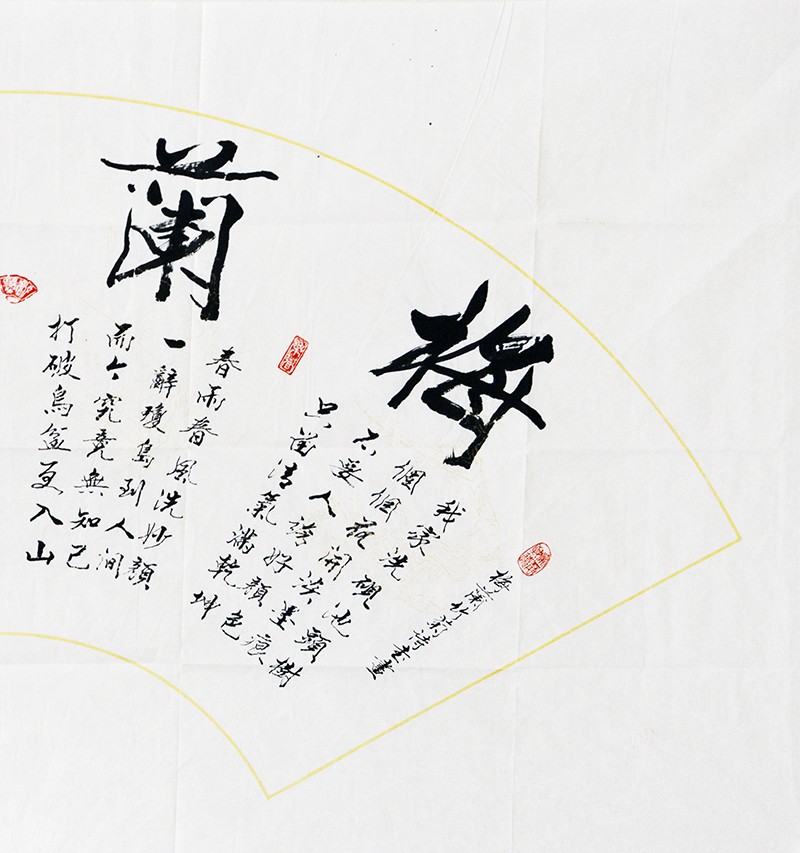 梅蘭竹菊詩書畫
梅
我家洗硯池頭樹
個個花開淡墨痕
不要人誇好顏色
只留清氣滿乾坤
蘭
春雨春風洗妙顏
一辭瓊島到人間
而今究竟無知己
打破烏盆更入山